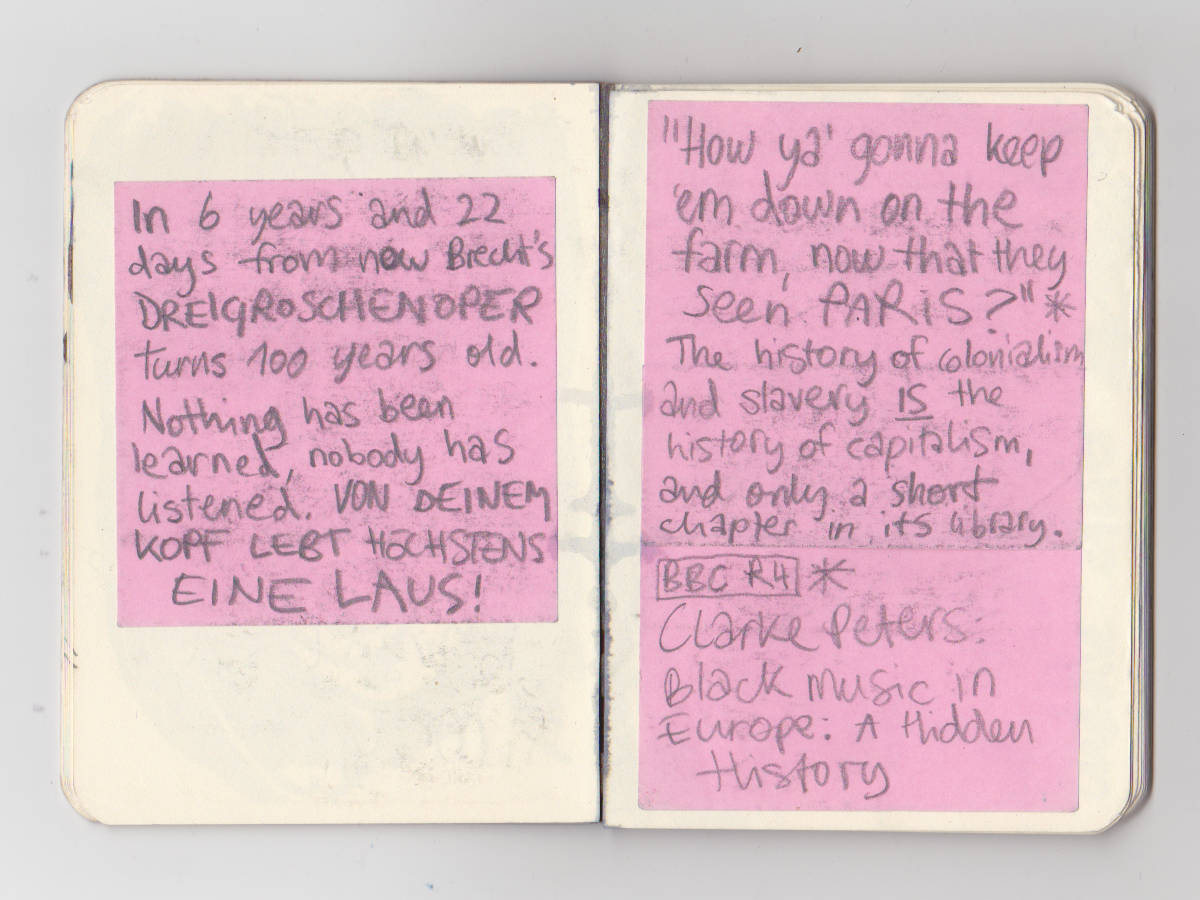 In 6 years and 22
days from now Brecht's
DREIGROSCHENOPER
turns 100 years old.
Nothing has been
learned, nobody has
listened. VON DEINEM
KOPF LEBT HÖCHSTENS
EINE LAUS!
"How ya' gonna keep
'em down on the
farm, now that they
seen PARiS?" *
The history of colonialism
and slavery IS the
history of capitalism,
and only a short
chapter in its library.
BBC R4 *
Clarke Peters:
Black Music in
Europe: A Hidden
History